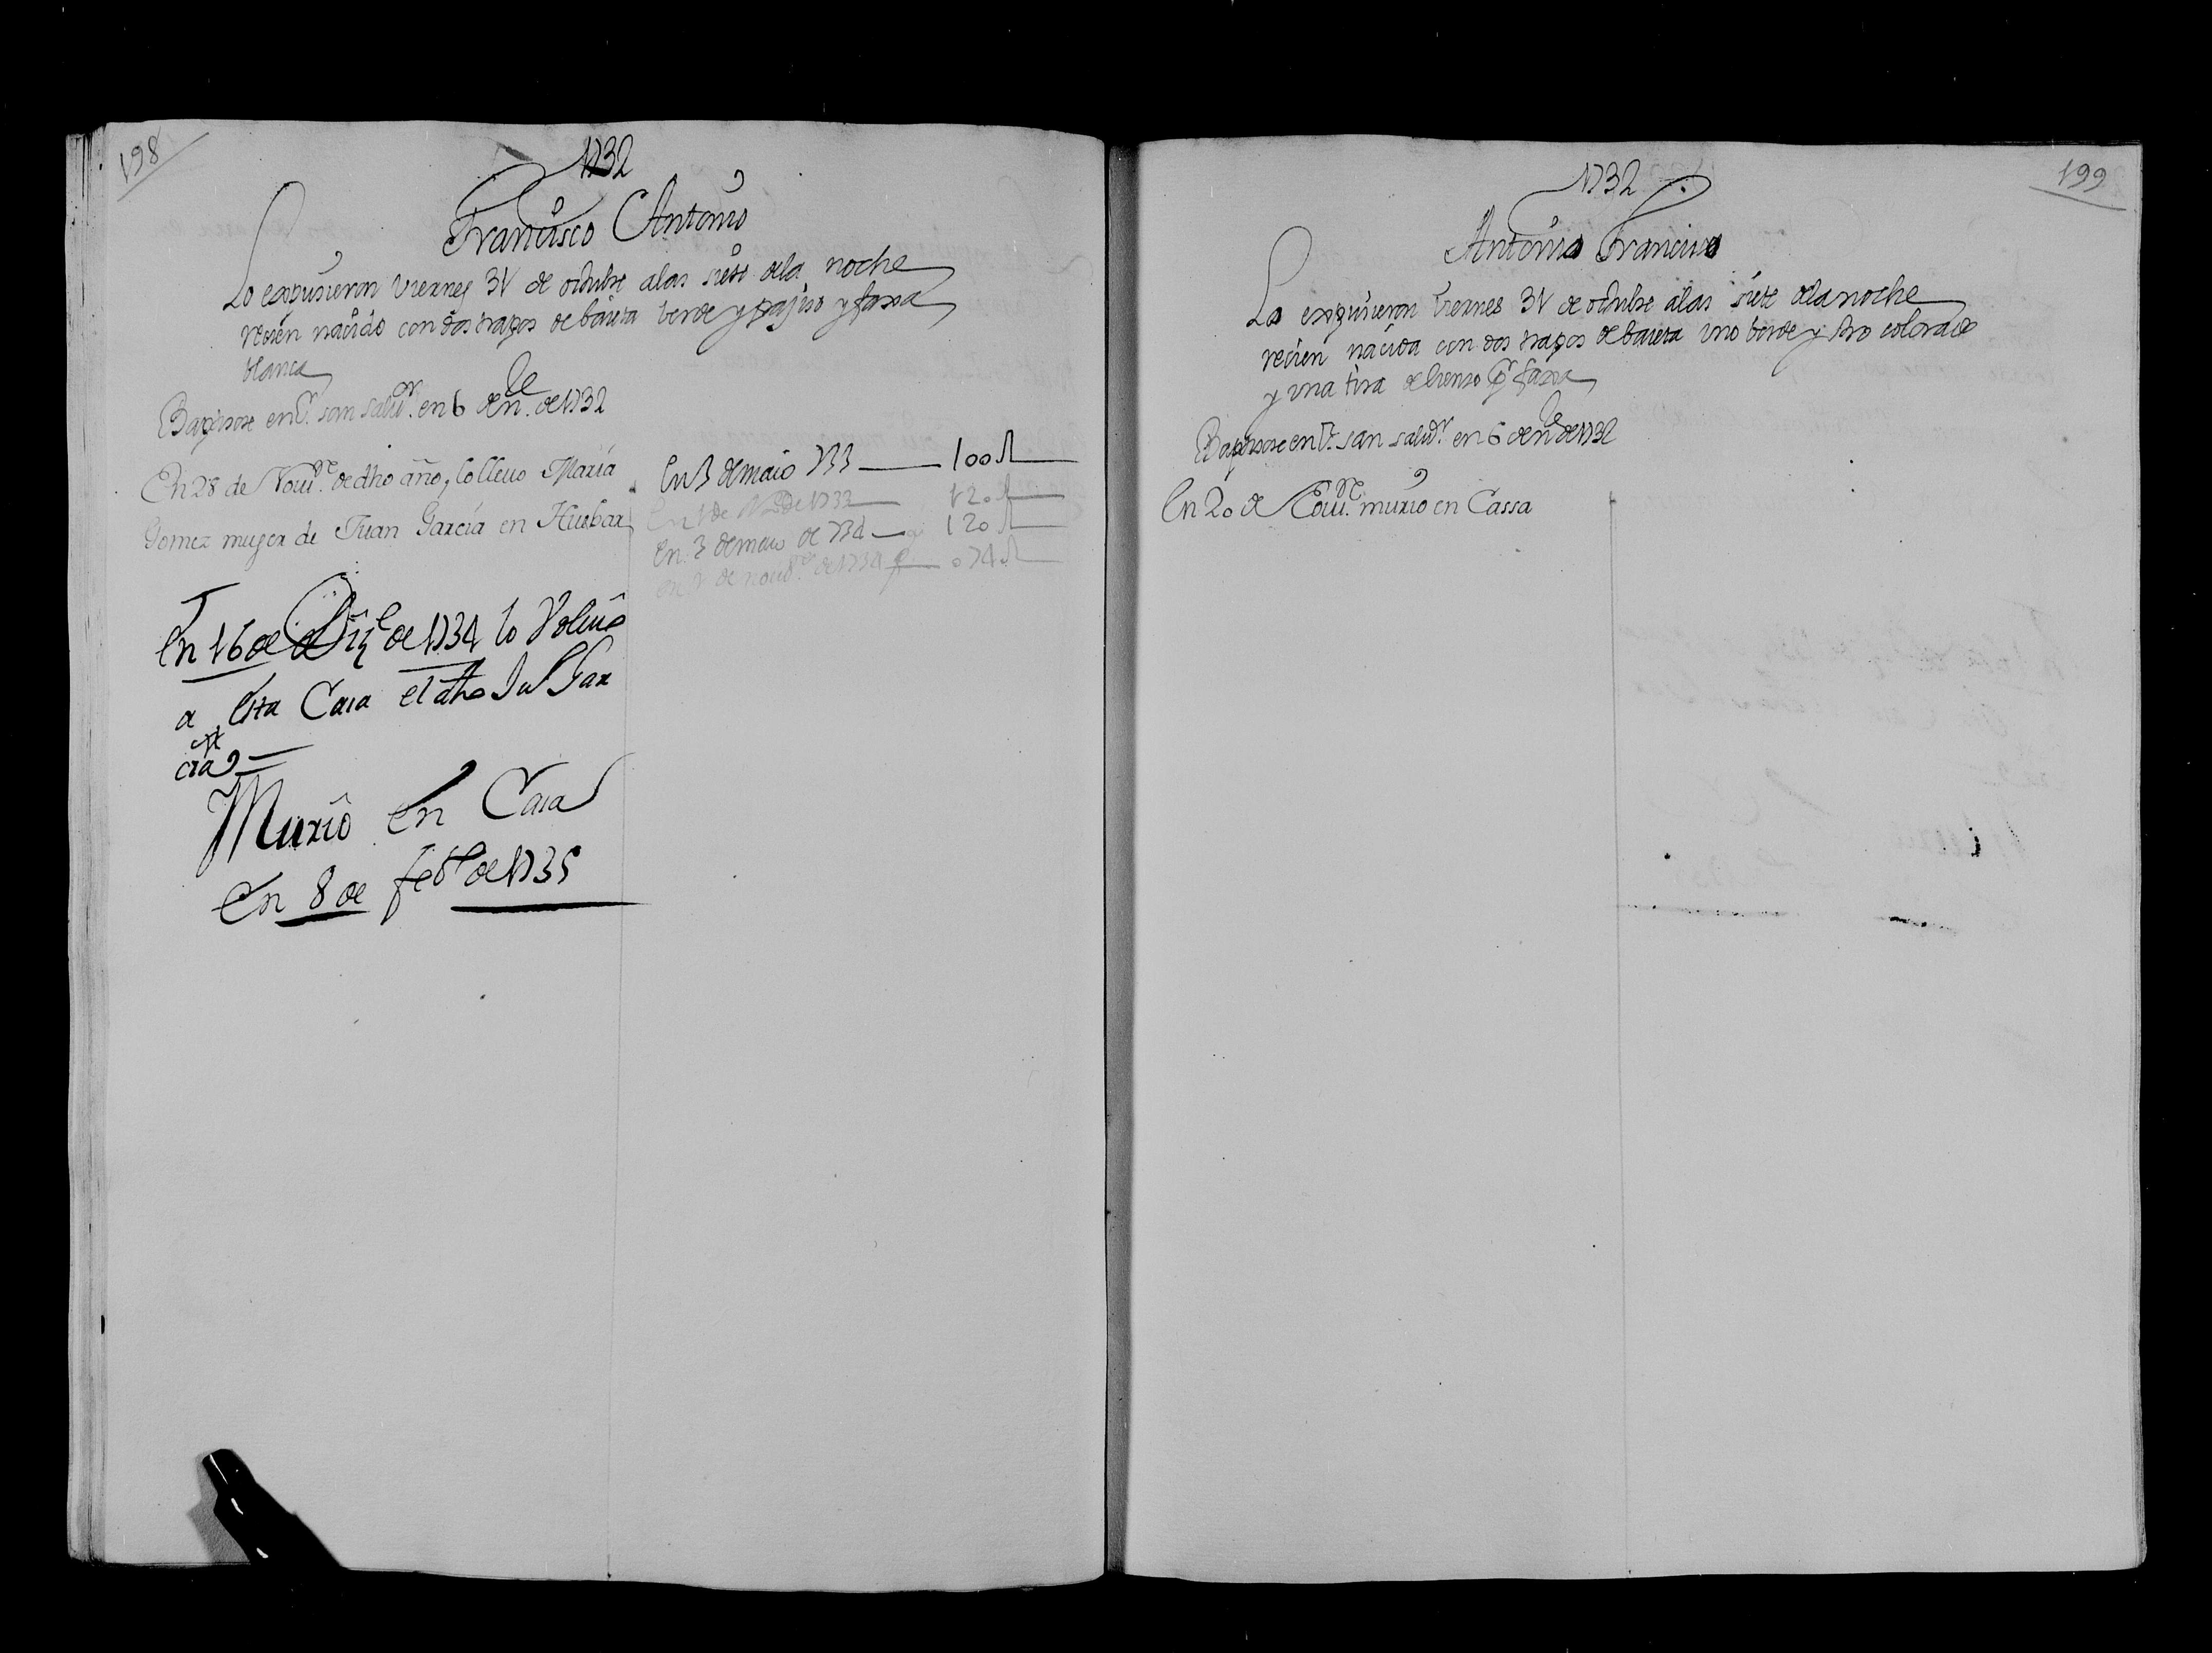 198
1732
Francisco Antonio
Lo expusieron viernes 31 de octubre a las siete de la noche
recien nacido con dos trapos de baieta berde y pajiso y faxa
blanca
Baptisose en Sn. san salvr. en 6 de ne. de 1732
En 28 de Nove. de dho año, lo lleuo Maria
Gomez muger de Juan Garcia en Huebar
En 3 de maio 733 — 100 R
En 1 de Ne de 1733 — 120 R
En 3 de maio de 734 — 120 R
en 1 de noue. de 1734 — 074 R
En 16 de Die de 1734 lo Voluio
a esta Casa el dho Ju Gar
cia
Murio en Casa
En 8 de febo de 1735
199
1732
Antonia Francisca
La expusieron viernes 31 de octubre a las siete de la noche
recien nacida con dos trapos de baieta uno berde y otro colorado
y una tira de lienso pr faxa
Baptisose en Sn. san salvr. en 6 de ne de 1732
En 20 de Noue. murio en Cassa